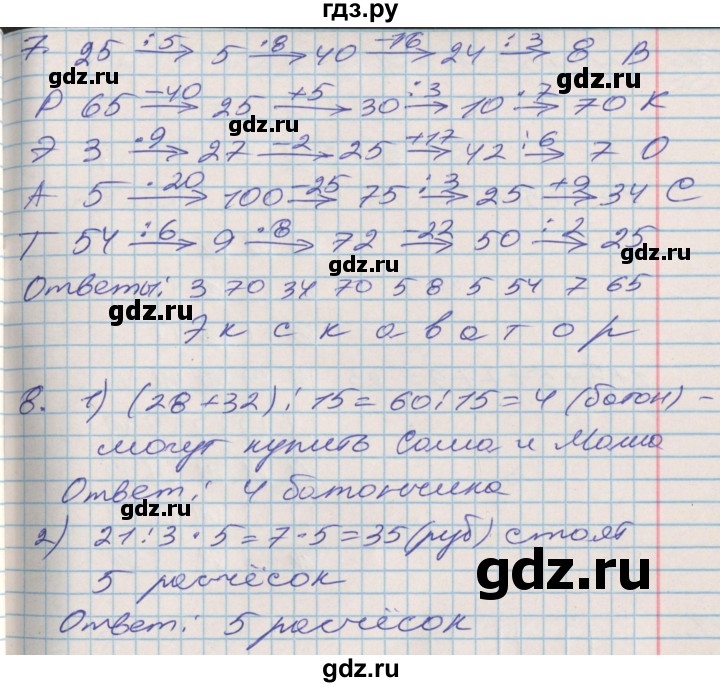 гдз.ру
7. 25 :5→ 5 ·8→ 40 -16→ 24 :3→ 8 В
gdz.ru
gdz.ru
Р 65 -40→ 25 +5→ 30 :3→ 10 ·7→ 70 К
gdz.ru
Э 3 ·9→ 27 -2→ 25 +17→ 42 :6→ 7 О
А 5 ·20→ 100 -25→ 75 :3→ 25 +9→ 34 С
gdz.ru
Т 54 :6→ 9 ·8→ 72 -22→ 50 :2→ 25
gdz.ru
Ответы: 3 70 34 70 5 8 5 54 7 65
gdz.ru
Э к с к а в а т о р
gdz.ru
8. 1) (28+32):15=60:15=4 (батон) -
могут купить Саша и Маша
gdz.ru
Ответ: 4 батончика
2) 21:3·5=7·5=35(руб) стоят
gdz.ru
gdz.ru
5 расчёсок
Ответ: 5 расчёсок
gdz.ru
gdz.ru
гдз.ру